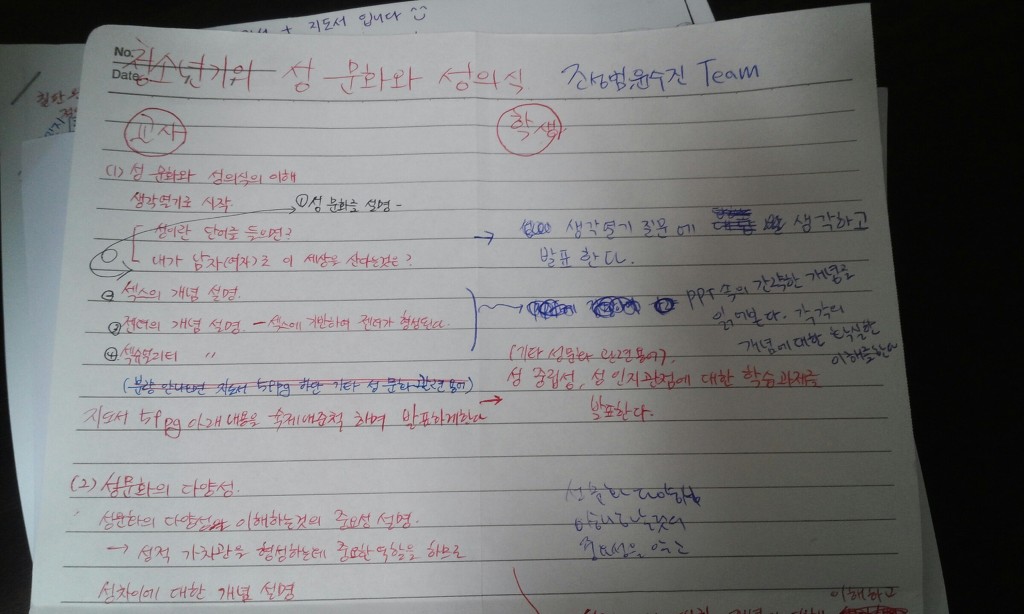 지도서 입니다
No.
Date
청소년기의 성 문화와 성의식 조성범,윤수진 Team
교사
학생
(1) 성 문화와 성의식의 이해
생각열기로 시작
①성 문화를 설명 -
성이란 단어를 들으면?
내가 남자(여자)로 이 세상을 산다는것은?
→ 생각열기 질문에 생각하고
발표 한다.
섹스의 개념 설명.
③젠더의 개념 설명. - 섹스에 기반하여 젠더가 형성된다.
④섹슈얼리티 〃
PPT 속의 간략한 개념을
읽어본다. 각각의
개념에 대한 확실한
이해를한다
(분량 안나오면 지도서 57pg 하단 기타 성 문화 관련용어)
지도서 57pg 아래내용을 숙제내줌척 하며 발표하게한다 →
(기타 성문화 관련용어).
성 중립성, 성 인지관점에 대한 학습과제를
발표한다.
(2) 성문화의 다양성.
성문화의 다양성 이해하는것의 중요성 설명.
→ 성적 가치관을 형성하는데 중요한역할을 하므로
성차이에 대한 개념 설명
성문화 다양성
이해하는것의
중요성을
이해하고